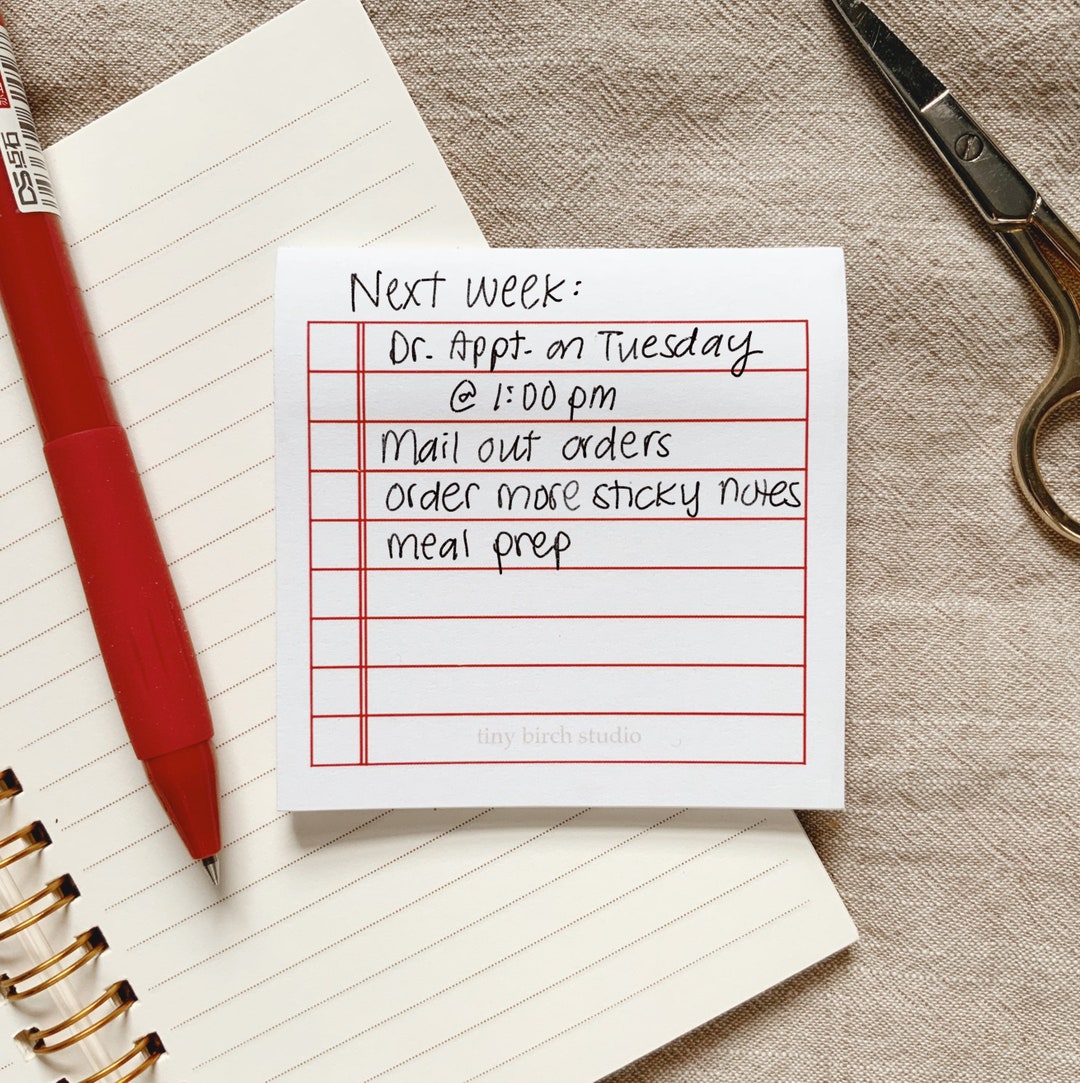 DS56
Next week:
Dr. Appt. on Tuesday
@ 1:00 pm
Mail out orders
order more sticky notes
meal prep
tiny birch studio